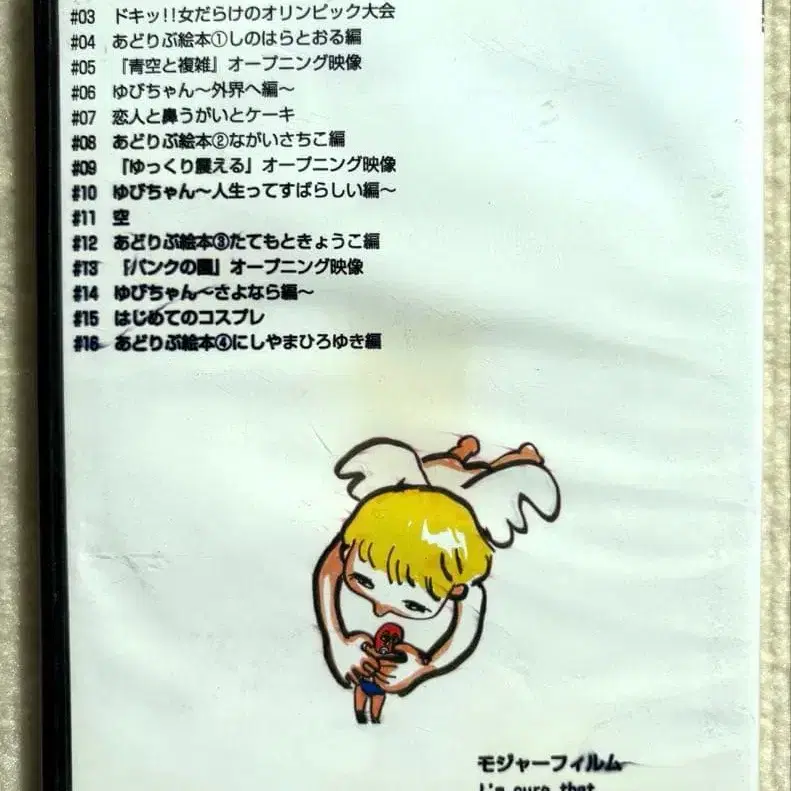 #03 ドキッ!!女だらけのオリンピック大会
#04 あどりぶ絵本①しのはらとおる編
#05 『青空と複雑』オープニング映像
#06 ゆびちゃん〜外界へ編〜
#07 恋人と鼻うがいとケーキ
#08 あどりぶ絵本②ながいさちこ編
#09 『ゆっくり震える』オープニング映像
#10 ゆびちゃん〜人生ってすばらしい編〜
#11 空
#12 あどりぶ絵本③たてもときょうこ編
#13 『パンクの園』オープニング映像
#14 ゆびちゃん〜さよなら編〜
#15 はじめてのコスプレ
#16 あどりぶ絵本④にしやまひろゆき編
モジャーフィルム
that